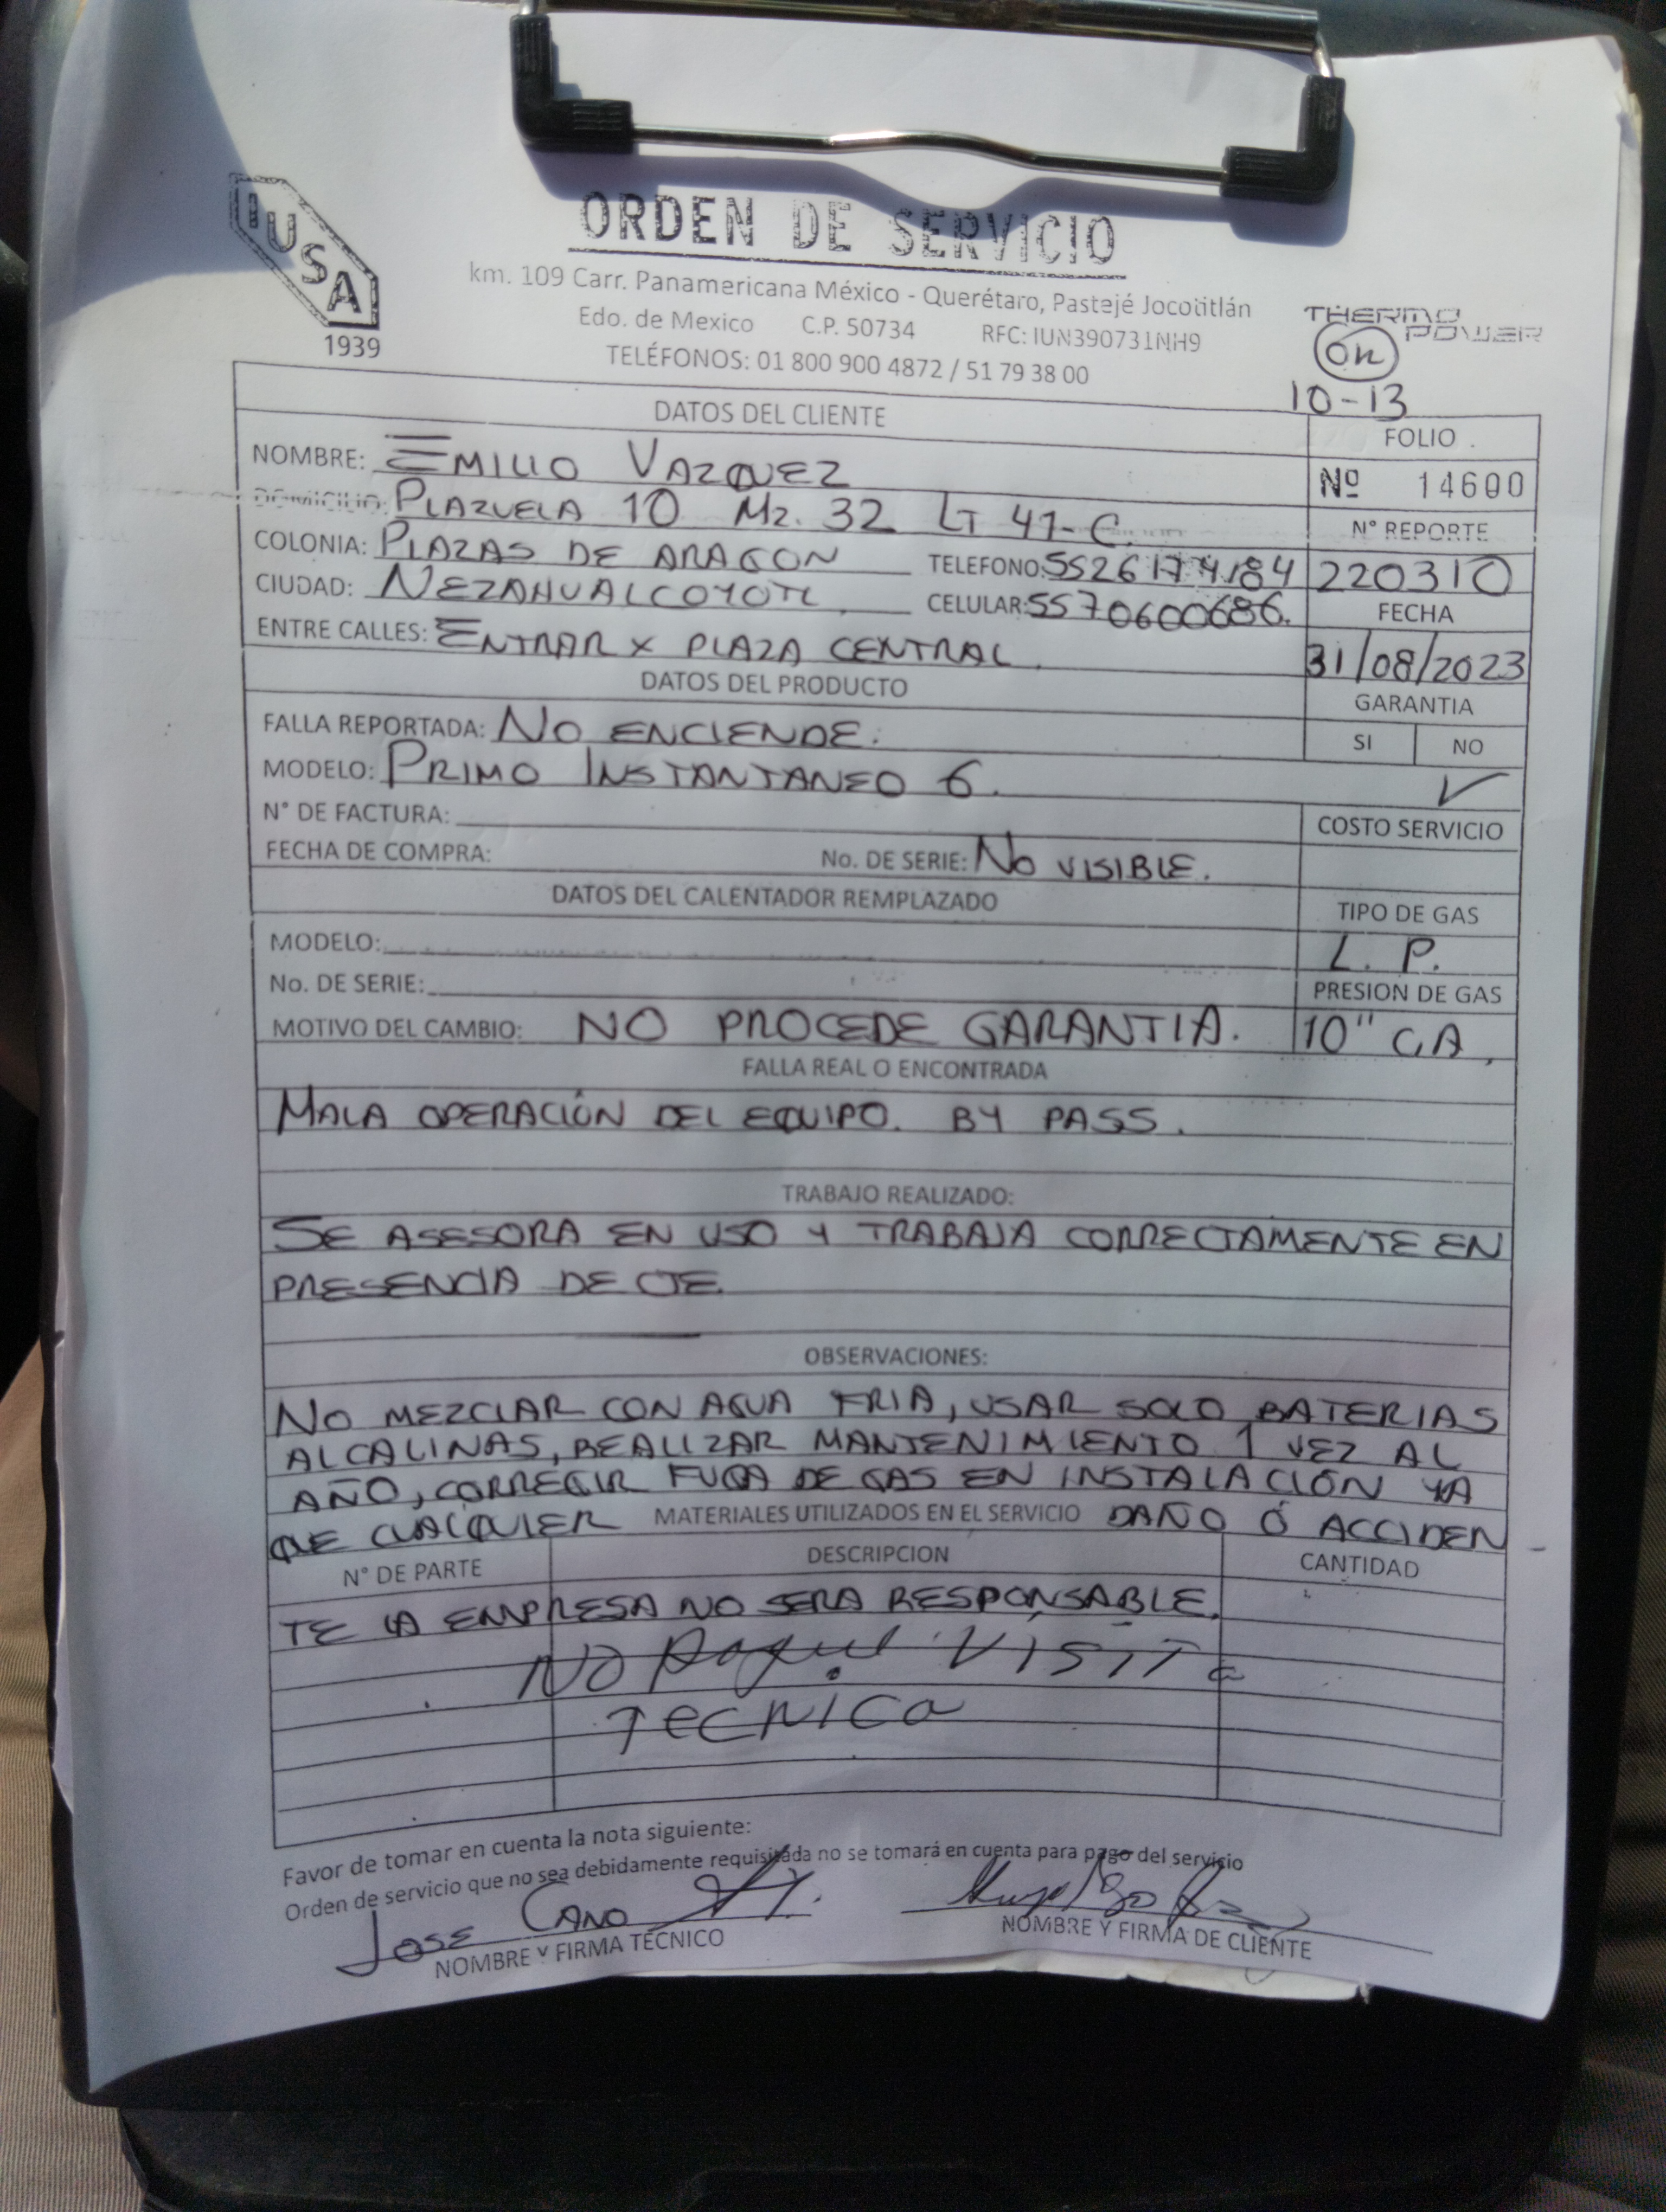 IUSA
1939
ORDEN DE SERVICIO
km. 109 Carr. Panamericana México - Querétaro, Pastejé Jocotitlán
Edo. de Mexico C.P. 50734 RFC: IUN390731NH9
TELÉFONOS: 01 800 900 4872 / 51 79 38 00
THERMO POWER
OK
10-13
DATOS DEL CLIENTE
FOLIO
NOMBRE: EMILIO VAZQUEZ
Nº 14600
DOMICILIO: PLAZUELA 10 Mz. 32 LT 41-C.
N° REPORTE
COLONIA: PLAZAS DE ARAGON TELEFONO: 5526174184
220310
CIUDAD: NEZAHUALCOYOTL CELULAR: 5570600686.
FECHA
ENTRE CALLES: ENTRAR X PLAZA CENTRAL.
31/08/2023
DATOS DEL PRODUCTO
GARANTIA
FALLA REPORTADA: NO ENCIENDE.
SI NO
MODELO: PRIMO INSTANTANEO 6.
✓
N° DE FACTURA:
COSTO SERVICIO
FECHA DE COMPRA: No. DE SERIE: NO VISIBLE.
DATOS DEL CALENTADOR REMPLAZADO
TIPO DE GAS
MODELO:
L. P.
No. DE SERIE:
PRESION DE GAS
MOTIVO DEL CAMBIO: NO PROCEDE GARANTIA.
10" CA.
FALLA REAL O ENCONTRADA
MALA OPERACIÓN DEL EQUIPO. BY PASS.
TRABAJO REALIZADO:
SE ASESORA EN USO Y TRABAJA CORRECTAMENTE EN
PRESENCIA DE CTE.
OBSERVACIONES:
NO MEZCLAR CON AGUA FRIA, USAR SOLO BATERIAS
ALCALINAS, REALIZAR MANTENIMIENTO 1 VEZ AL
AÑO, CORREGIR FUGA DE GAS EN INSTALACIÓN YA
QUE CUALQUIER MATERIALES UTILIZADOS EN EL SERVICIO DAÑO Ó ACCIDEN-
N° DE PARTE DESCRIPCION CANTIDAD
TE LA EMPRESA NO SERA RESPONSABLE.
NO Pague VISITa
TECNICa
Favor de tomar en cuenta la nota siguiente:
Orden de servicio que no sea debidamente requisitada no se tomará en cuenta para pago del servicio
JOSE CANO
NOMBRE Y FIRMA TÉCNICO
NOMBRE Y FIRMA DE CLIENTE